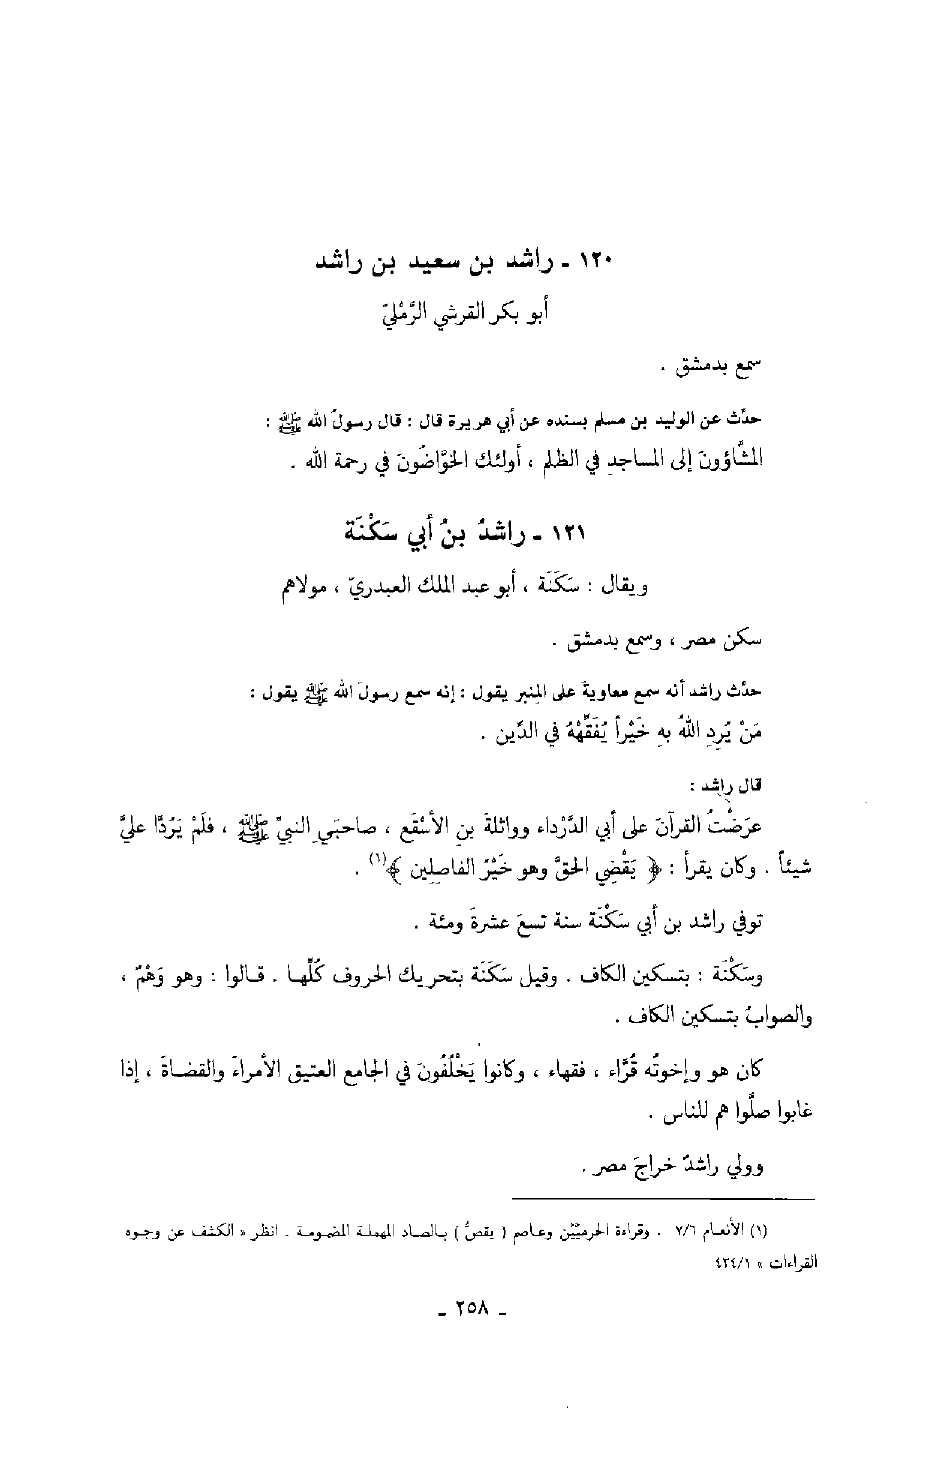 ١٢٠ ـ راشد بن سعيد بن راشد
أبو بكر القرشي الرَّمْليّ
سمع بدمشق .
حدَّث عن الوليد بن مسلم بسنده عن أبي هريرة قال : قال رسولُ الله ﷺ :
المشَّاؤونَ إلى المساجدِ في الظلم ، أولئك الخوَّاضُونَ في رحمة الله .
١٢١ ـ راشدُ بنُ أبي سَكْنَة
ويقال : سَكَنَة ، أبو عبد الملك العبدريّ ، مولاهم
سكن مصر ، وسمع بدمشق .
حدث راشد أنه سمع معاويةَ على المنبر يقول : إنه سمع رسولَ الله ﷺ يقول :
مَنْ يُرِدِ اللهُ بهِ خَيْراً يُفَقِّهْهُ في الدِّين .
قال راشد :
عرَضْتُ القرآنَ على أبي الدَّرْداء وواثلةَ بنِ الأسْقَع ، صاحبَي النبيِّ ﷺ ، فلَمْ يَرُدَّا عليَّ
شيئاً . وكان يقرأ : ﴿ يَقْضِي الحقَّ وهو خَيْرُ الفاصلِين ﴾(١) .
توفي راشد بن أبي سَكْنَة سنة تسعَ عشرةَ ومئة .
وسَكْنَة : بتسكين الكاف . وقيل سَكَنَة بتحريك الحروف كُلِّها . قالوا : وهو وَهْمٌ ،
والصوابُ بتسكين الكاف .
كان هو وإخوتُه قُرَّاء ، فقهاء ، وكانوا يَخْلُفُونَ في الجامع العتيق الأمراءَ والقضاةَ ، إذا
غابوا صلَّوا هم للناس .
وولي راشدٌ خراجَ مصر .
(١) الأنعام ٧/٦ . وقراءة الحرميَّيْن وعاصم ( يقصُّ ) بالصاد المهملة المضمومة . انظر « الكشف عن وجوه
القراءات » ٤٣٤/١
ـ ٢٥٨ ـ